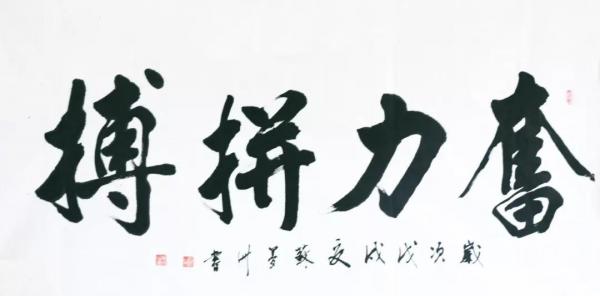 奮力拼搏
歲次戊戌夏 書